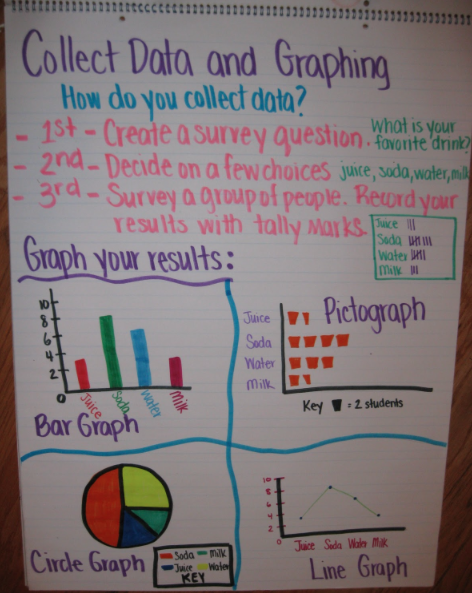 Collect Data and Graphing
How do you collect data?
- 1st - Create a survey question. What is your favorite drink?
- 2nd - Decide on a few choices juice, soda, water, milk
- 3rd - Survey a group of people. Record your
results with tally marks.
Juice |||
Soda |||| |||
Water |||| ||
Milk |||
Graph your results:
10
8
6
4
2
0
Juice Soda Water Milk
Bar Graph
Pictograph
Juice
Soda
Water
Milk
Key = 2 students
Circle Graph
Soda Milk
Juice Water
KEY
10
8
6
4
2
Juice Soda Water Milk
Line Graph